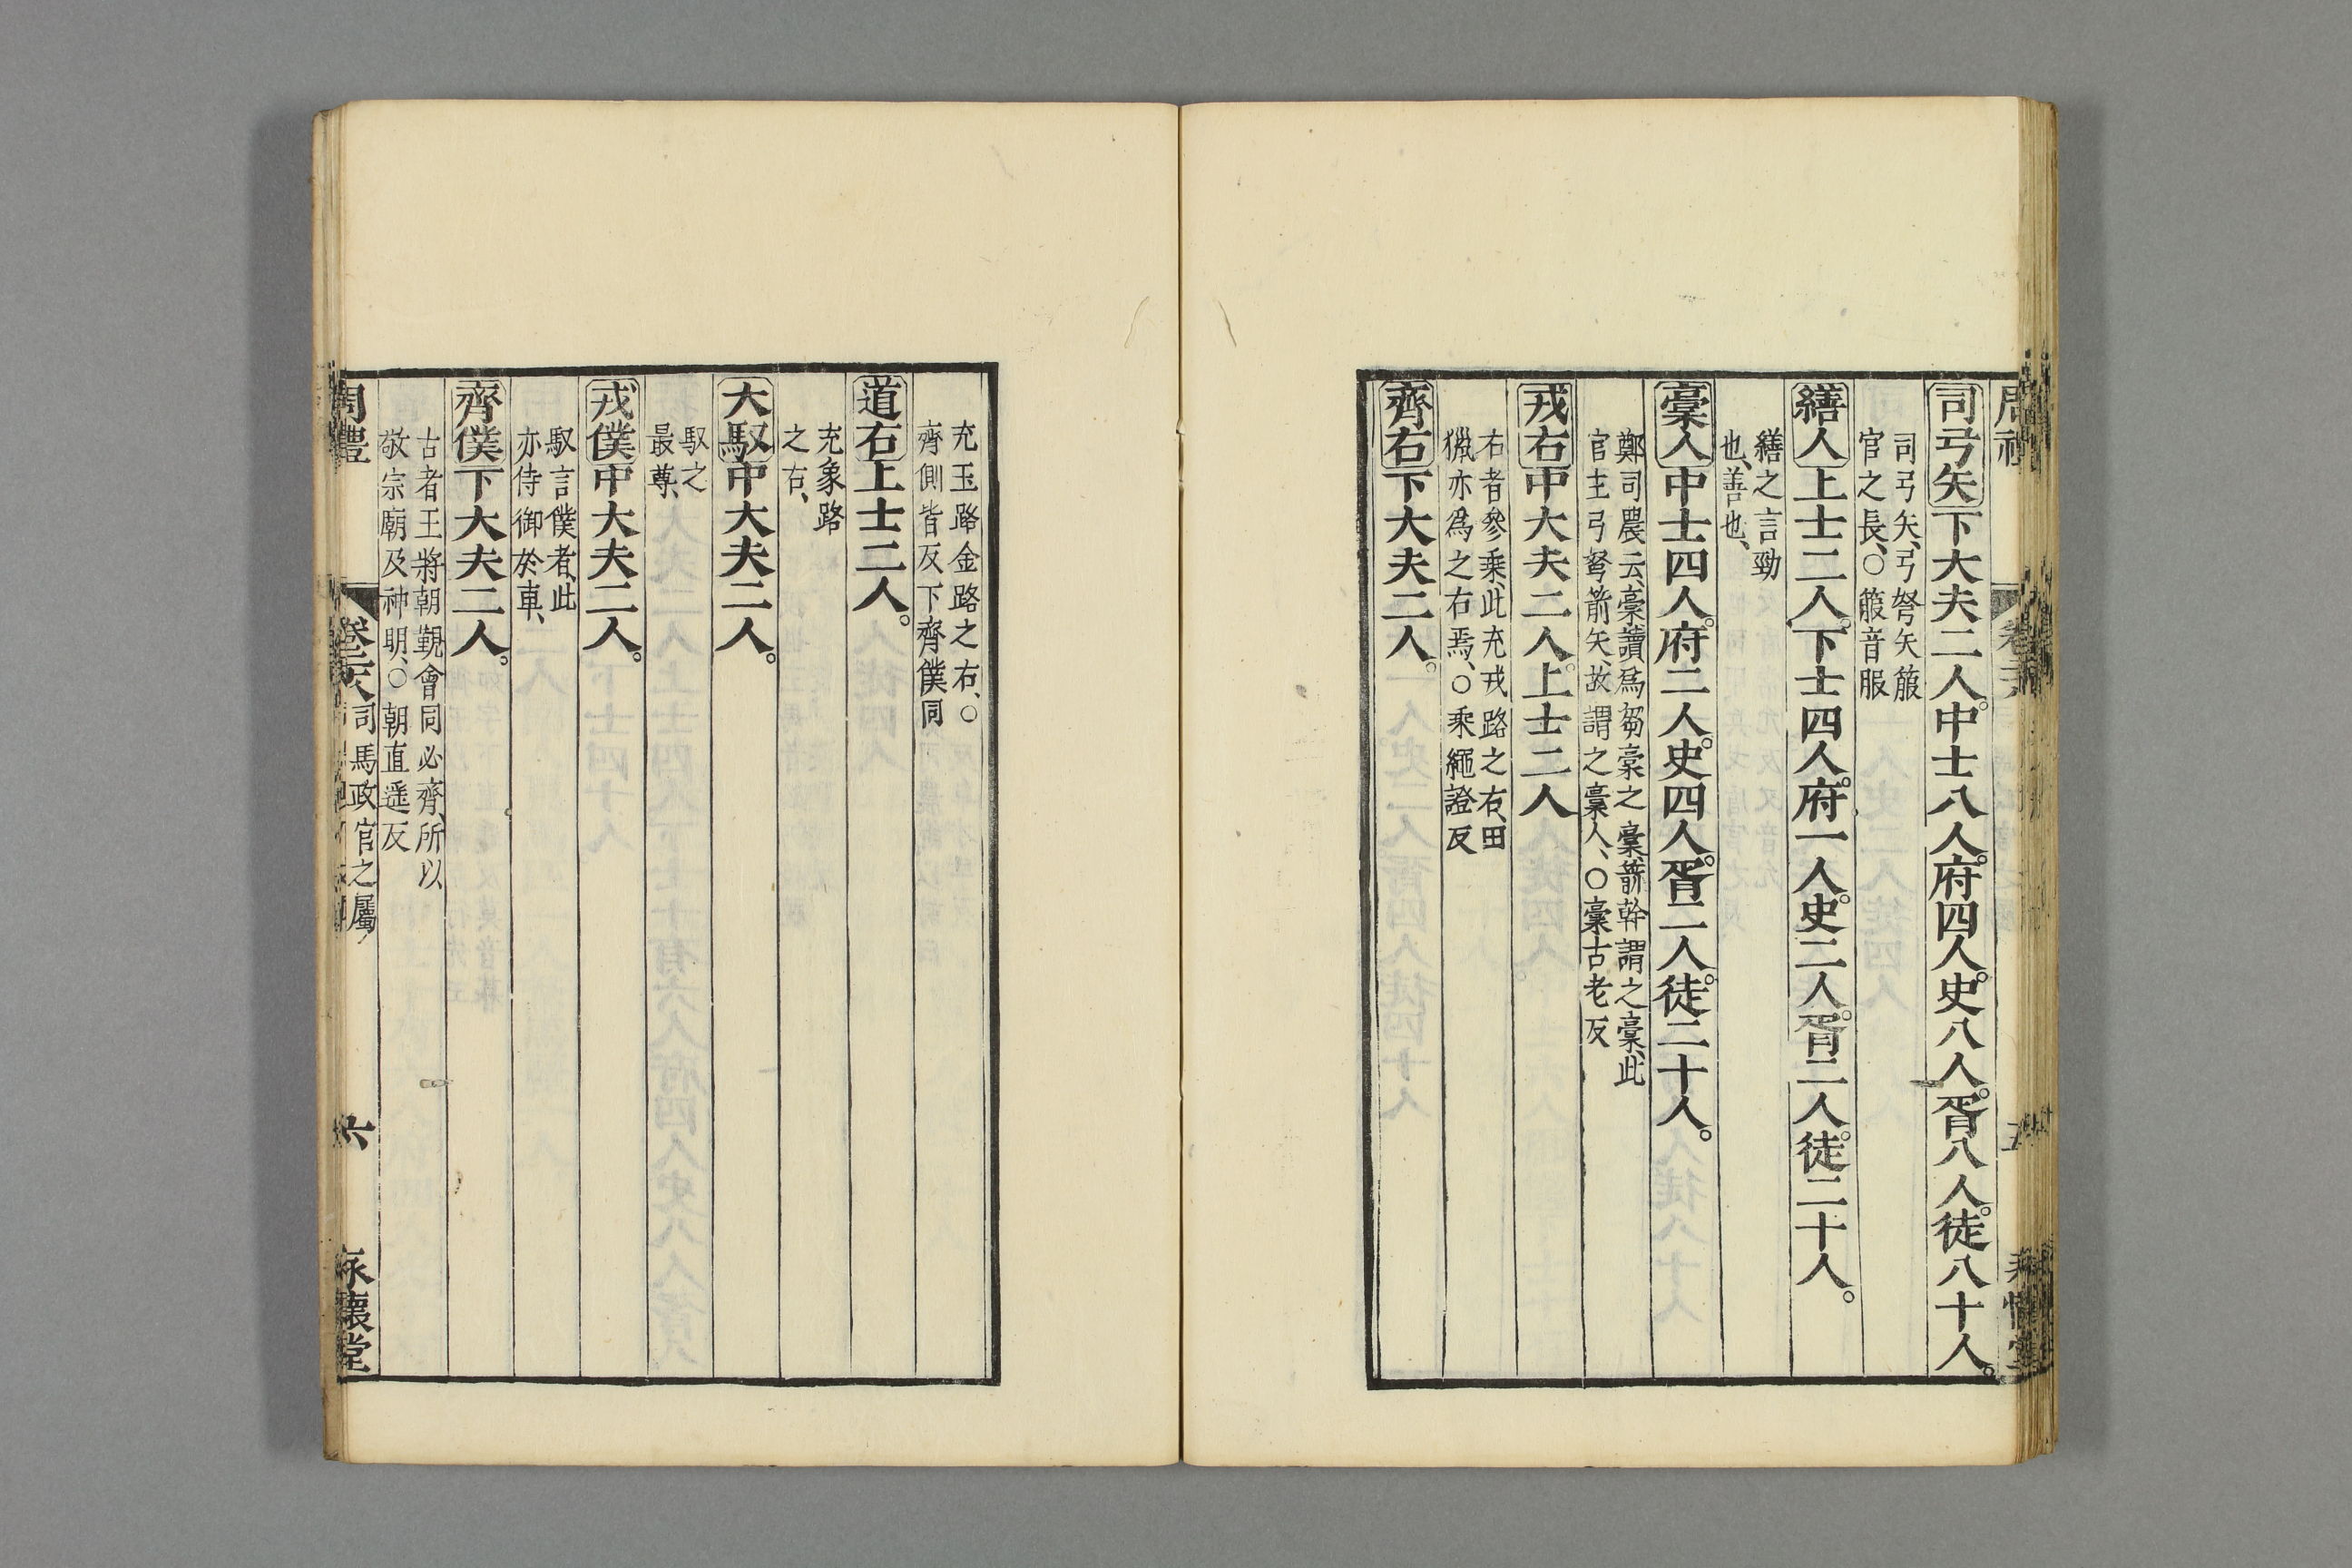 司弓矢下大夫二人。中士八人。府四人。史八人。胥八人。徒八十人。
司弓矢、弓弩矢箙
官之長、○箙音服
繕人上士二人。下士四人。府一人。史二人。胥二人。徒二十人。
繕之言勁
也、善也、
槀人中士四人。府二人。史四人。胥二人。徒二十人。
鄭司農云、槀讀爲芻槀之槀、箭幹謂之槀、此
官主弓弩箭矢、故謂之槀人、○槀古老反
戎右中大夫二人。上士二人
右者參乘、此充戎路之右、田
獵亦爲之右焉、○乘繩證反
齊右下大夫二人。
充玉路金路之右、○
齊側皆反下齊僕同
道右上士二人。
充象路
之右、
大馭中大夫二人。
馭之
最尊、
戎僕中大夫二人。
馭言僕者、此
亦侍御於車、
齊僕下大夫二人。
古者王將朝覲會同必齊、所以
敬宗廟及神明、○朝直遥反
周禮 卷二十八 司馬政官之屬 六 永懷堂